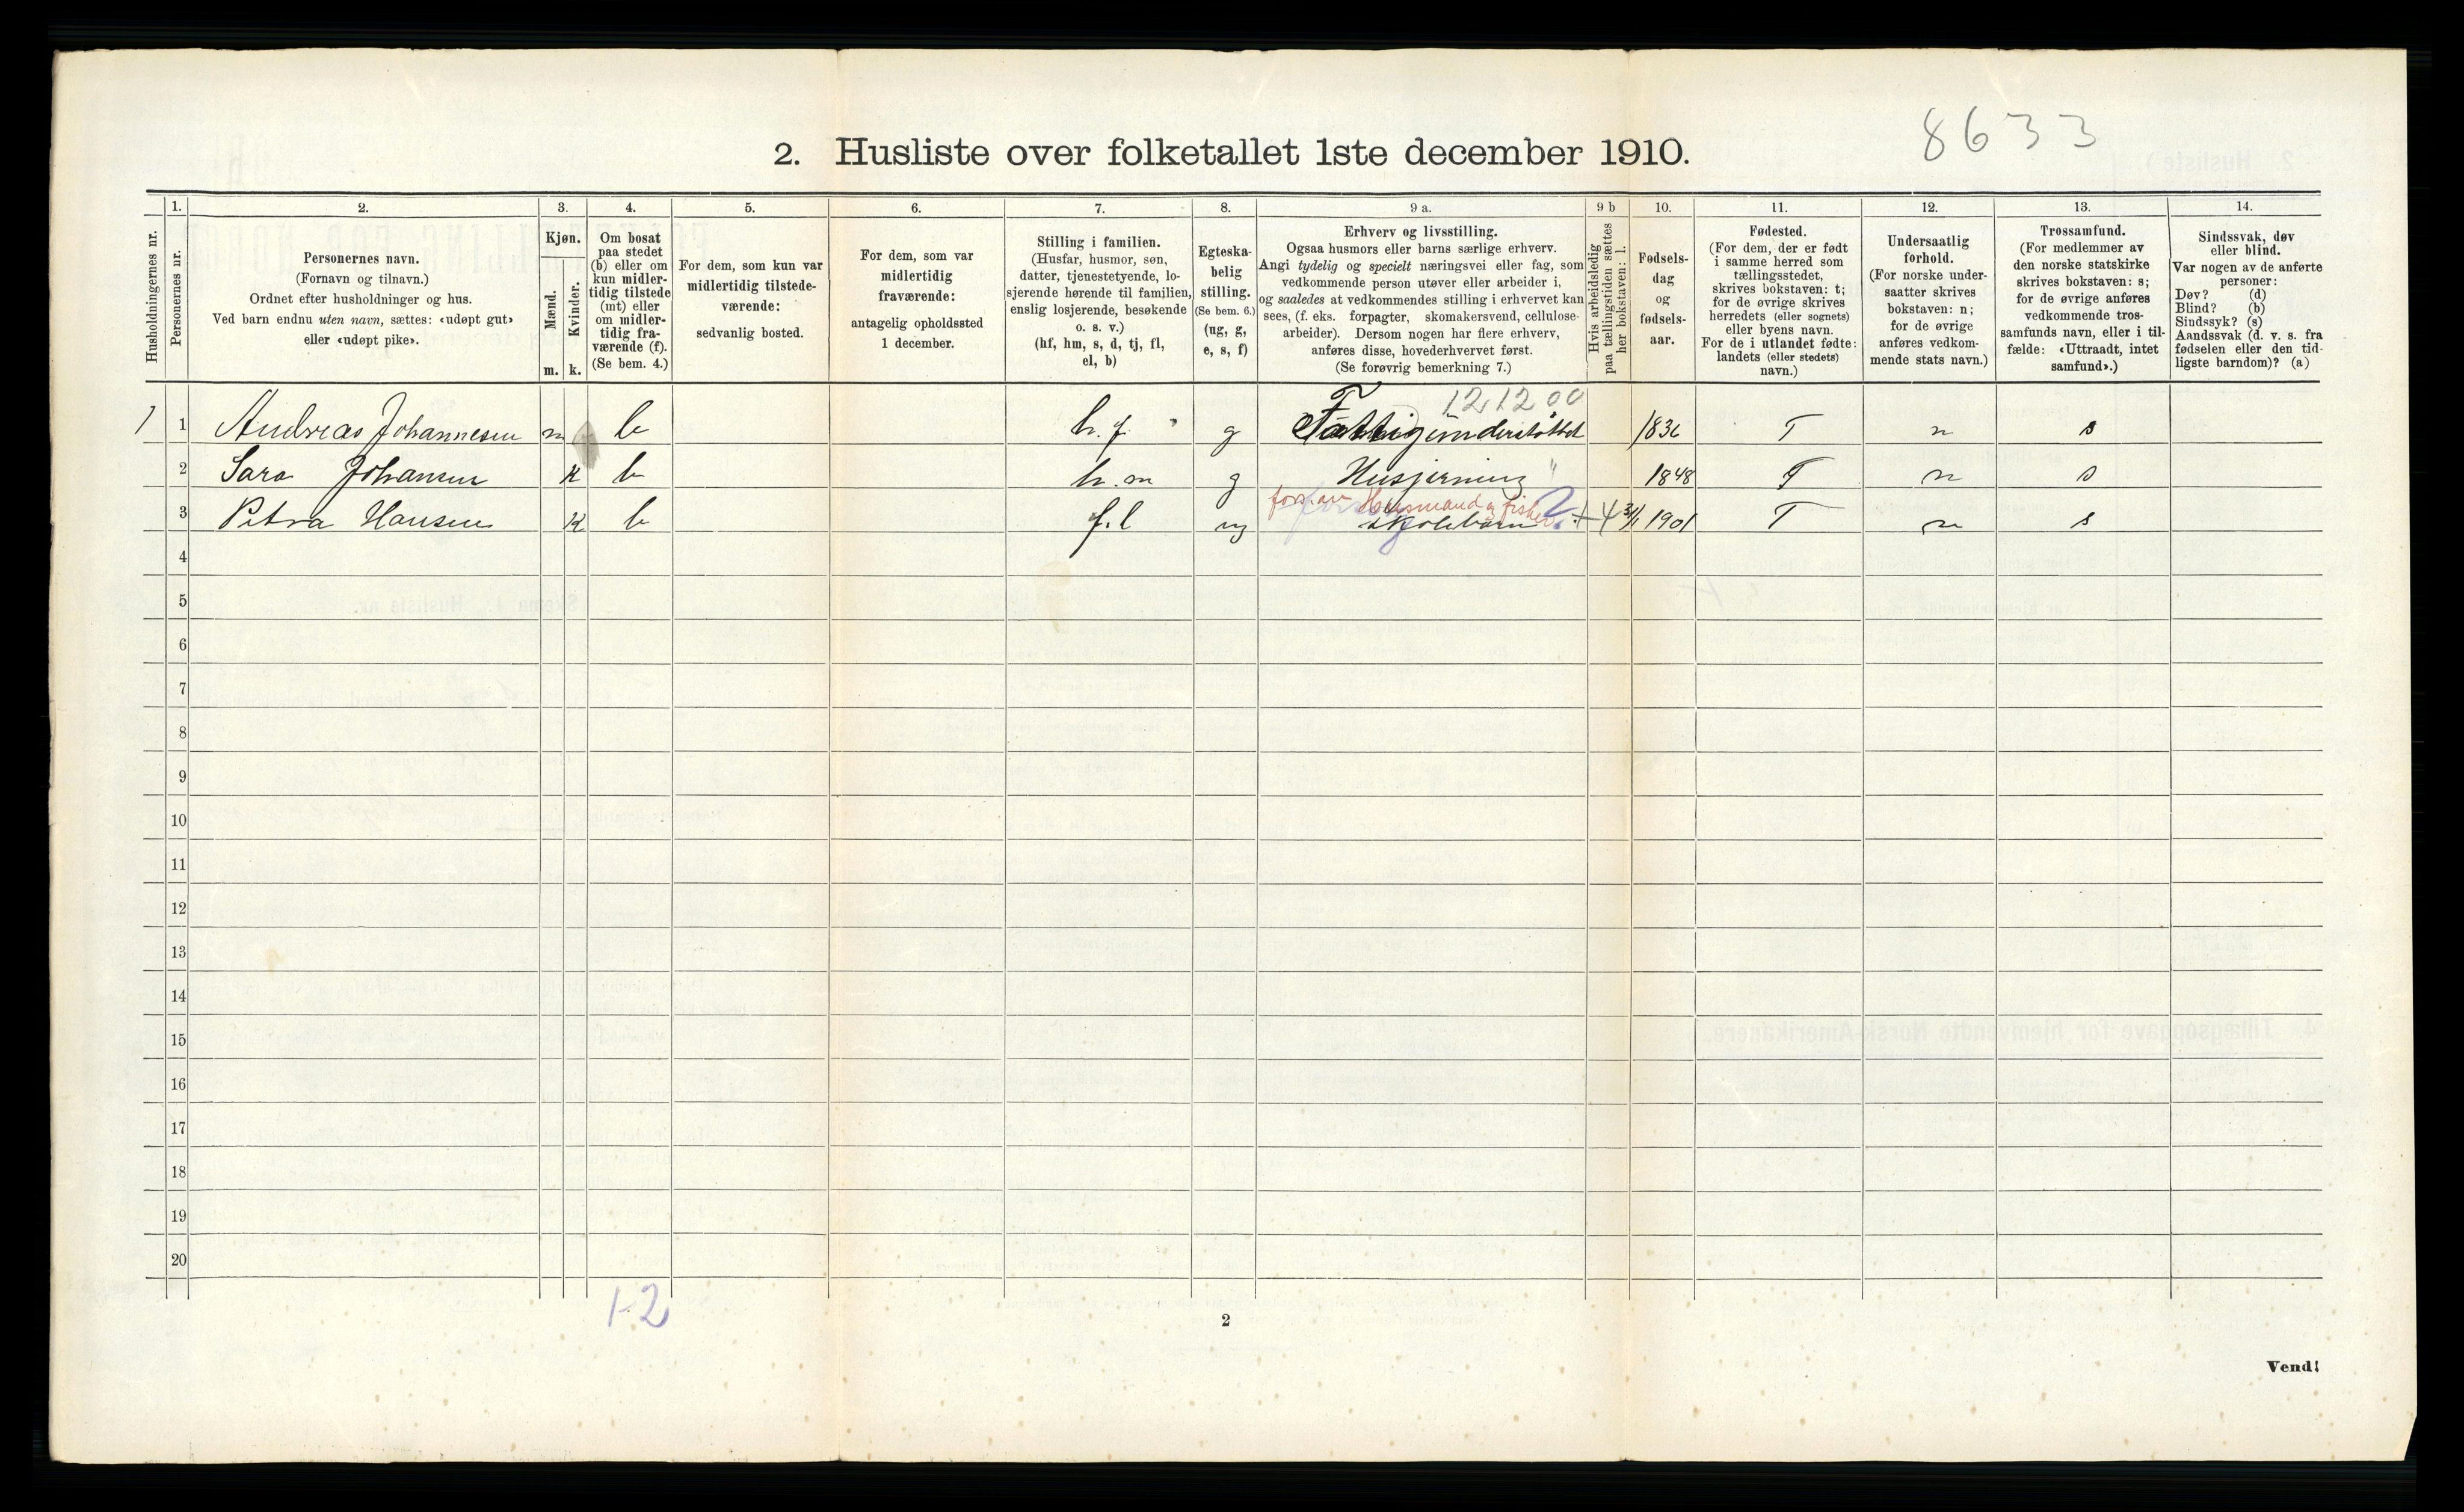 8633
2. Husliste over folketallet 1ste december 1910.
Husholdningernes nr.
1.
Personernes nr.
2.
Personernes navn.
(Fornavn og tilnavn.)
Ordnet efter husholdninger og hus.
Ved barn endnu uten navn, sættes: «udøpt gut»
eller «udøpt pike».
3.
Kjøn.
Mænd.
Kvinder.
m. k.
4.
Om bosat
paa stedet
(b) eller om
kun midler-
tidig tilstede
(mt) eller
om midler-
tidig fra-
værende (f).
(Se bem. 4.)
5.
For dem, som kun var
midlertidig tilstede-
værende:
sedvanlig bosted.
6.
For dem, som var
midlertidig
fraværende:
antagelig opholdssted
1 december.
7.
Stilling i familien.
(Husfar, husmor, søn,
datter, tjenestetyende, lo-
sjerende hørende til familien,
enslig losjerende, besøkende
o. s. v.)
(hf, hm, s, d, tj, fl,
el, b)
8.
Egteska-
belig
stilling.
(Se bem. 6.)
(ug, g,
e, s, f)
9 a.
Erhverv og livsstilling.
Ogsaa husmors eller barns særlige erhverv.
Angi tydelig og specielt næringsvei eller fag, som
vedkommende person utøver eller arbeider i,
og saaledes at vedkommendes stilling i erhvervet kan
sees, (f. eks. forpagter, skomakersvend, cellulose-
arbeider). Dersom nogen har flere erhverv,
anføres disse, hovederhvervet først.
(Se forøvrig bemerkning 7.)
9 b
Hvis arbeidsledig
paa tællingstiden sættes
her bokstaven: l.
10.
Fødsels-
dag
og
fødsels-
aar.
11.
Fødested.
(For dem, der er født
i samme herred som
tællingsstedet,
skrives bokstaven: t;
for de øvrige skrives
herredets (eller sognets)
eller byens navn.
For de i utlandet fødte:
landets (eller stedets)
navn.)
12.
Undersaatlig
forhold.
(For norske under-
saatter skrives
bokstaven: n;
for de øvrige
anføres vedkom-
mende stats navn.)
13.
Trossamfund.
(For medlemmer av
den norske statskirke
skrives bokstaven: s;
for de øvrige anføres
vedkommende tros-
samfunds navn, eller i til-
fælde: «Uttraadt, intet
samfund».)
14.
Sindssvak, døv
eller blind.
Var nogen av de anførte
personer:
Døv? (d)
Blind? (b)
Sindssyk? (s)
Aandssvak (d. v. s. fra
fødselen eller den tid-
ligste barndom)? (a)
121200
1 1 Andreas Johannesen m b h.f g Fattigunderstøttet 1836 T n s
2 Sara Johansen k b h.m g Husgjerning " 1848 T n s
fors. av Husmand og fisker
3 Petra Hansen k b f.l ug skolebarn 31/1 1901 T n s
4
5
6
7
8
9
10
11
12
13
14
15
16
17
18
19
20
1-2
2
Vend!